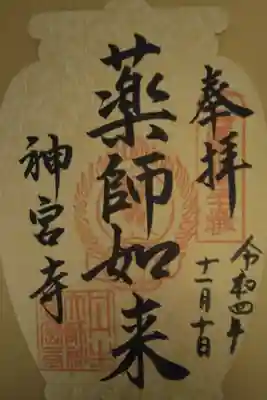 奉拝
令和四年
十一月十日
薬師如来
神宮寺